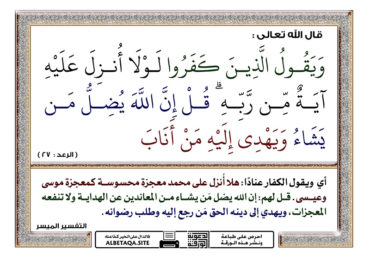 قال الله تعالى :
وَيَقُولُ الَّذِينَ كَفَرُوا لَوْلَا أُنزِلَ عَلَيْهِ
آيَةٌ مِّن رَّبِّهِ ۗ قُلْ إِنَّ اللَّهَ يُضِلُّ مَن
يَشَاءُ وَيَهْدِي إِلَيْهِ مَنْ أَنَابَ
( الرعد : ٢٧ )
أي ويقول الكفار عنادًا: هلا أُنزل على محمد معجزة محسوسة كمعجزة موسى
وعيسى . قل لهم: إن الله يضل مَن يشاء من المعاندين عن الهداية ولا تنفعه
المعجزات، ويهدي إلى دينه الحق مَن رجع إليه وطلب رضوانه .
التفسير الميسر
احرص على طباعة
ونشر هذه الورقة
فالدال على الخير كفاعله
ALBETAQA.SITE